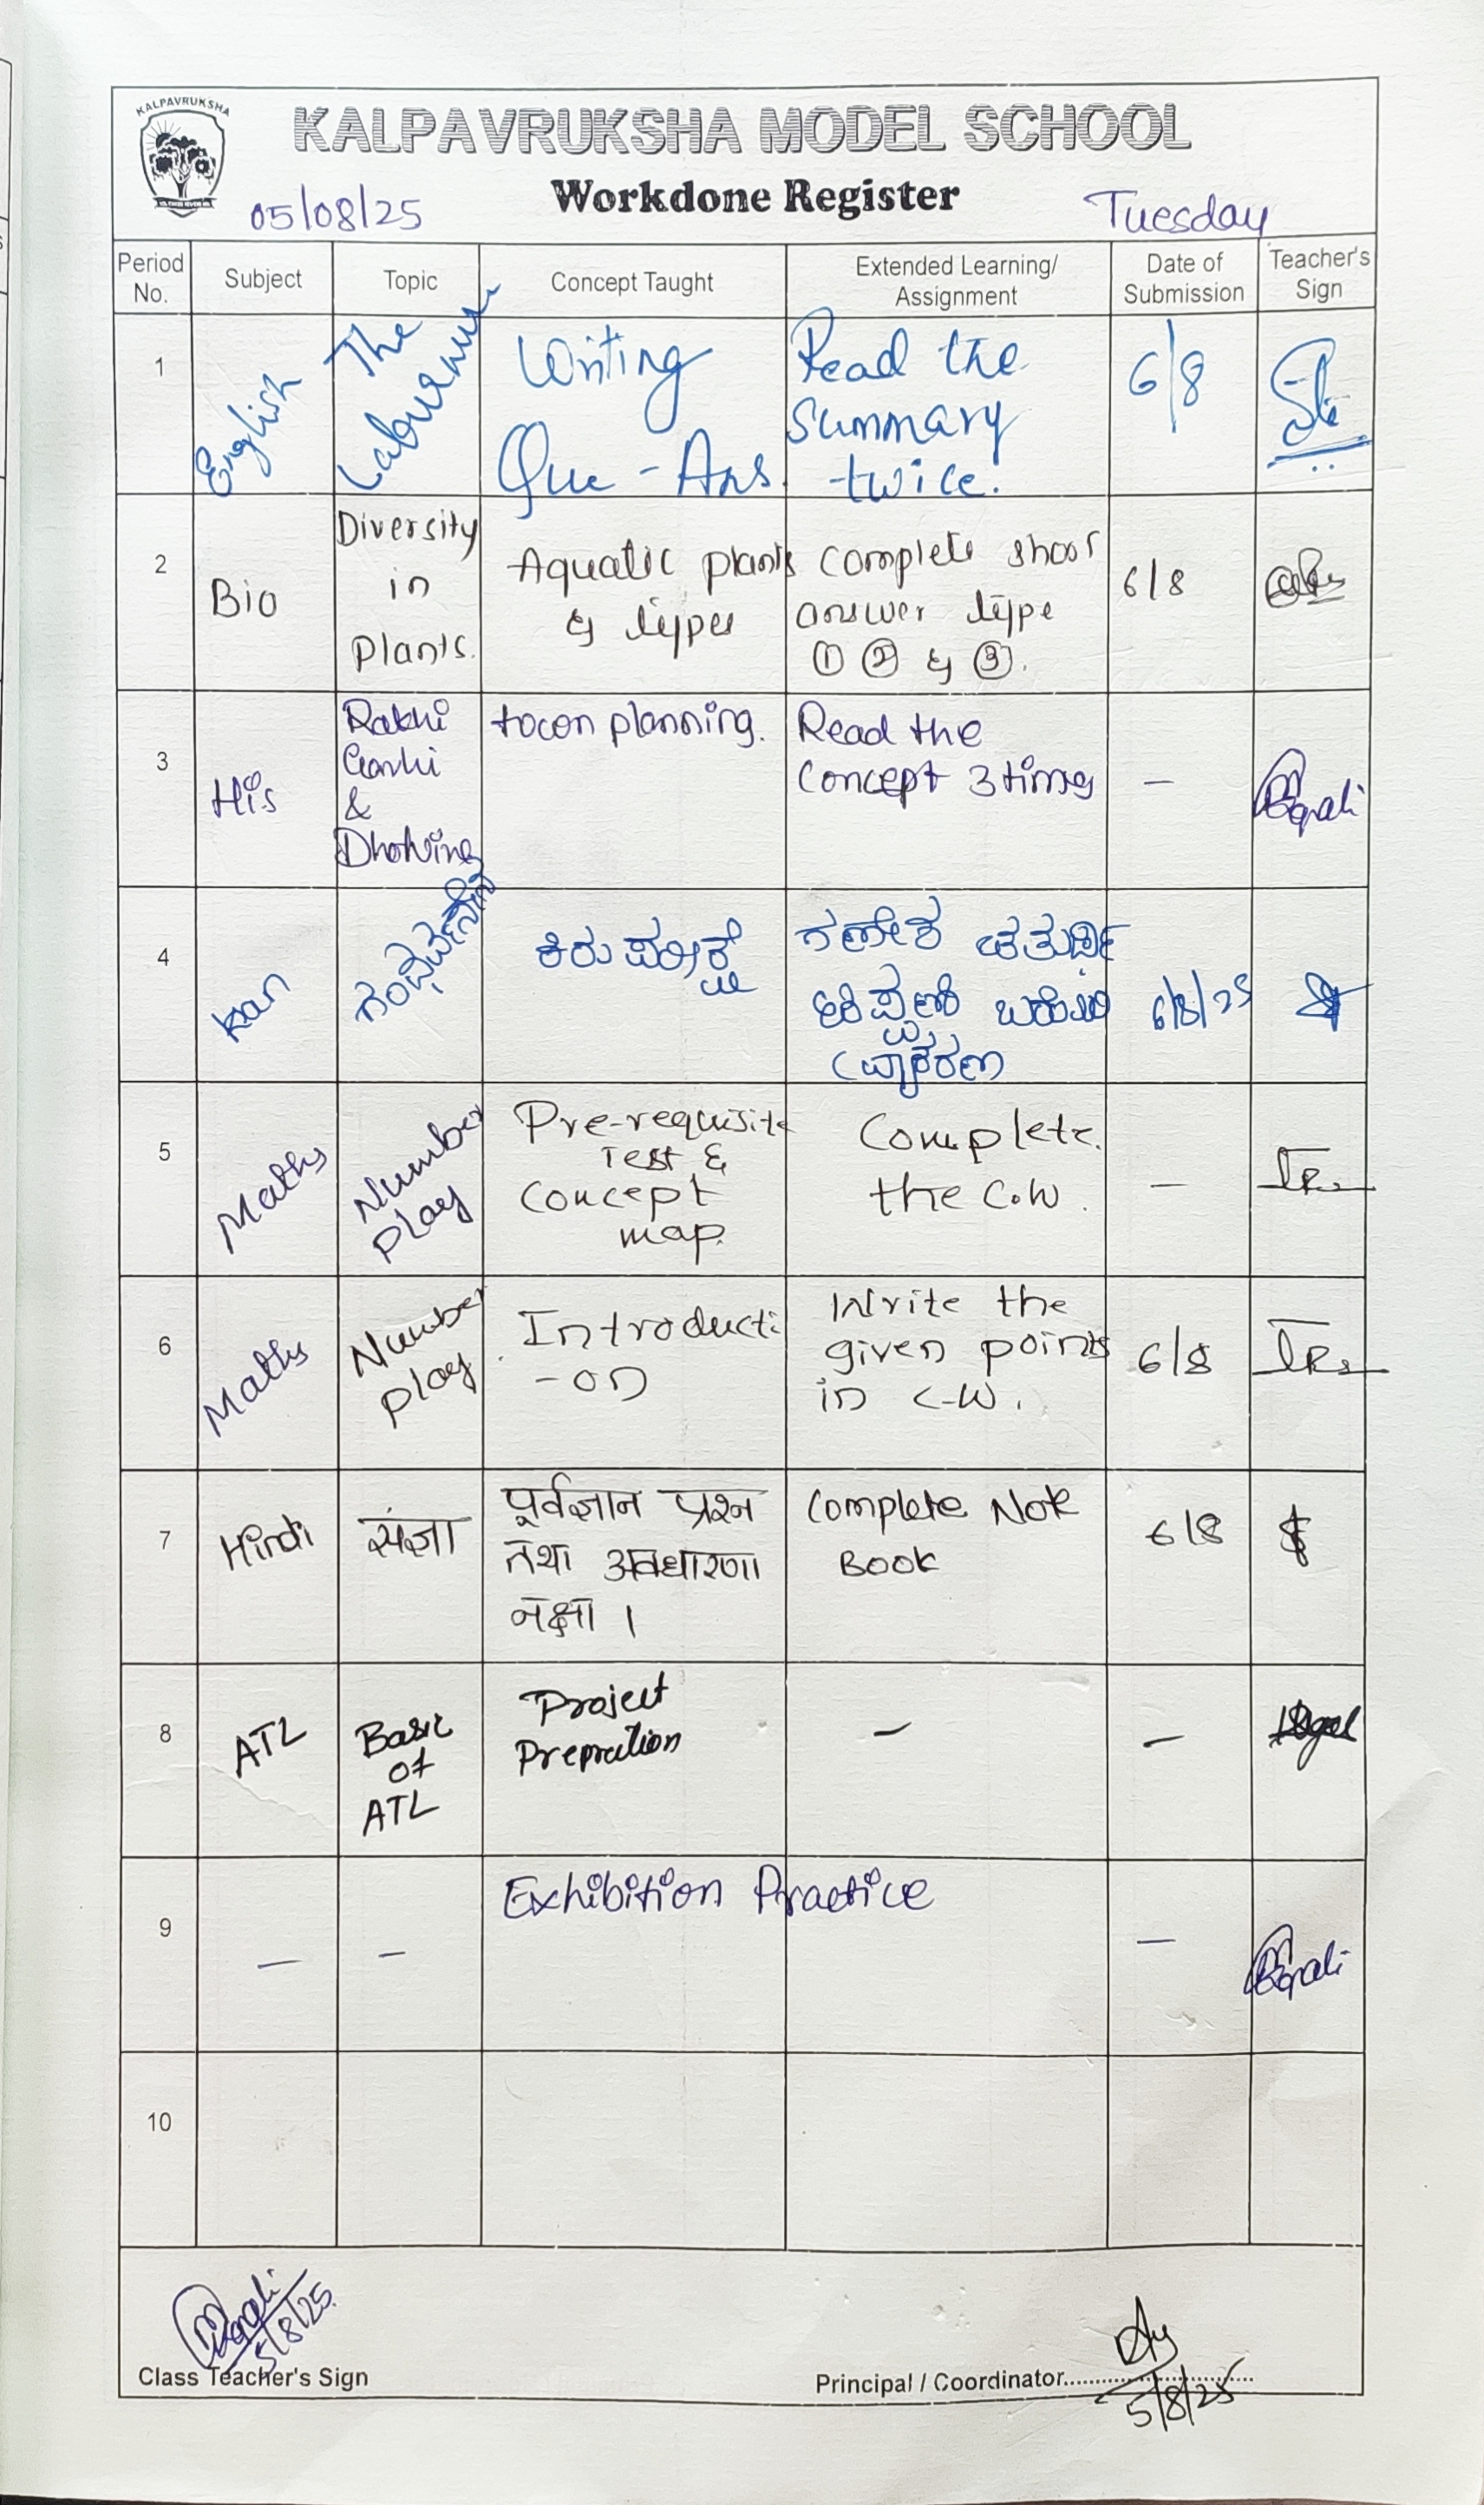 KALPAVRUKSHA
KALPAVRUKSHA MODEL SCHOOL
Workdone Register
05/08/25
Tuesday
Period No.
Subject
Topic
Concept Taught
Extended Learning/
Assignment
Date of
Submission
Teacher's
Sign
1
English
The
Laburnum
Writing
Que - Ans.
Read the
summary
twice.
6/8
2
Bio
Diversity
in
plants.
Aquatic plants
& types
complete short
answer type
① ② & ③.
6/8
3
His
Rakhi
Garhi
&
Dholvira
tocon planning.
Read the
concept 3 times
—
4
kan
ಕಿರು ಪರೀಕ್ಷೆ
ಗಣೇಶ ಚತುರ್ಥಿ
ಬರೆಯಿರಿ
(ವ್ಯಾಕರಣ
6/8/25
5
Maths
Number
play
Pre-requisite
Test &
Concept
map.
Complete
the C.W.
—
6
Maths
Number
play
Introducti
-on
Write the
given points
in C-W.
6/8
7
Hindi
संज्ञा
पूर्वज्ञान प्रश्न
तथा अवधारणा
नक्षा ।
Complete Note
Book
6/8
8
ATL
Basic
of
ATL
Project
Prepration
—
—
9
—
—
Exhibition Practice
—
10
5/8/25.
Class Teacher's Sign
Principal / Coordinator
5/8/25